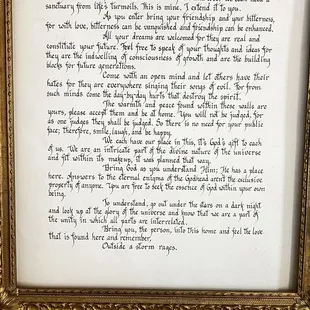 sanctuary from life's turmoils. This is mine. I extend it to you.
As you enter bring your friendship and your bitterness,
for with love, bitterness can be vanquished and friendship can be enhanced.
All your dreams are welcomed for they are real and
constitute your future. Feel free to speak of your thoughts and ideas for
they are the indwelling of consciousness of growth and are the building
blocks for future generations.
Come with an open mind and let others have their
hates for they are everywhere singing their songs of evil. For from
such minds come the day-by-day hurts that destroy the spirit.
The warmth and peace found within these walls are
yours, please accept them and be at home. You will not be judged, for
as one judges they shall be judged. So there is no need for your public
face; therefore, smile, laugh, and be happy.
We each have our place in this, it's God's gift to each
of us. We are an intricate part of the divine nature of the universe
and fit within its makeup, it was planned that way.
Bring God as you understand Him; He has a place
here. Answers to the eternal enigma of the Godhead aren't the exclusive
property of anyone. You are free to seek the essence of God within your own
being.
To understand, go out under the stars on a dark night
and look up at the glory of the universe and know that we are a part of
the unity in which all parts are interrelated.
Bring you, the person, into this home and feel the love
that is found here and remember,
Outside a storm rages.